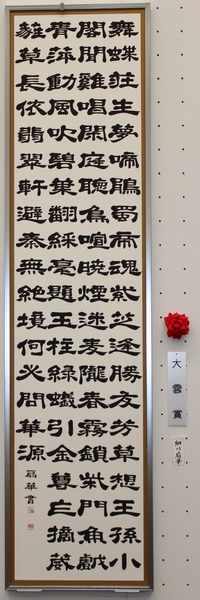 舞蝶荘生夢啼鵑蜀帝魂紫芝逢勝友芳草想王孫小
閣聞雞唱閑庭聴鳥喧暁煙迷麦隴春霧鎖柴門魚戯
青萍動風吹碧葉翻綵毫題玉柱緑蟻引金尊亡摘
草長依翡翠軒避秦無絶境何必問華源
扇華書
大雲賞
細川扇華